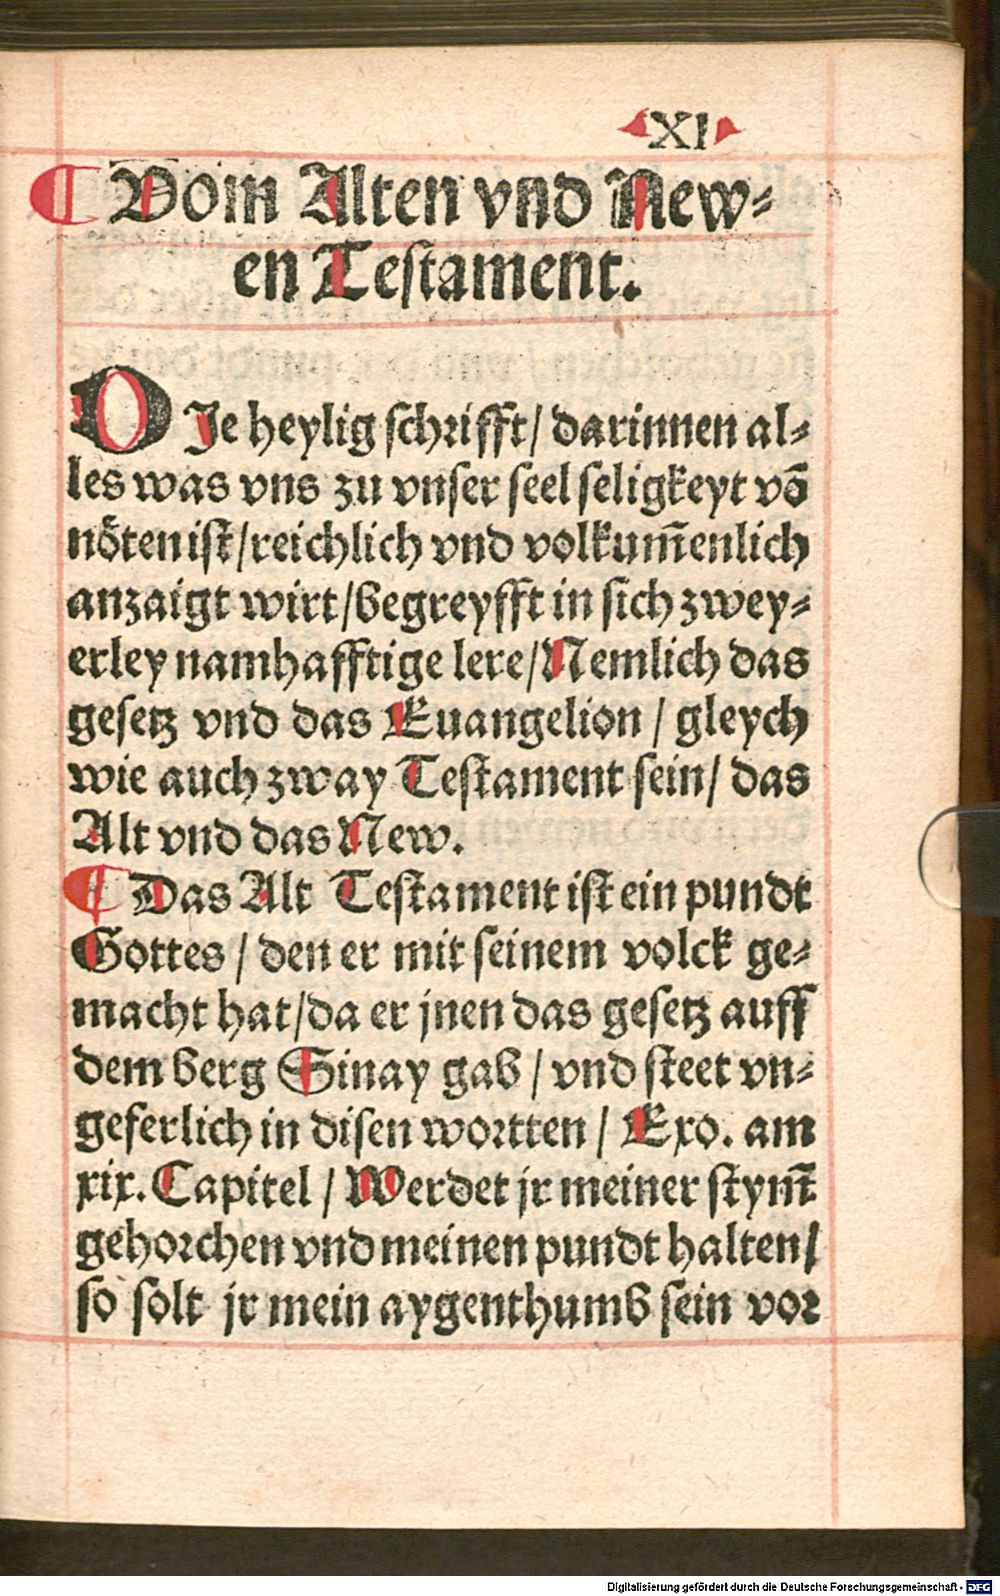 XI
¶ Vom Alten vnd New⸗
en Testament.
DJe heylig schrifft/ darinnen al⸗
les was vns zu vnser seel seligkeyt vō
nöten ist/reichlich vnd volkum̅enlich
anzaigt wirt/begreyfft in sich zwey⸗
erley namhafftige lere/Nemlich das
gesetz vnd das Euangelion / gleych
wie auch zway Testament sein/ das
Alt vnd das New.
¶ Das Alt Testament ist ein pundt
Gottes / den er mit seinem volck ge⸗
macht hat/da er jnen das gesetz auff
dem berg Sinay gab / vnd steet vn⸗
geferlich in disen wortten / Exo. am
xix. Capitel / Werdet jr meiner stym̅
gehorchen vnd meinen pundt halten/
so solt jr mein aygenthumb sein vor
Digitalisierung gefördert durch die Deutsche Forschungsgemeinschaft - DFG